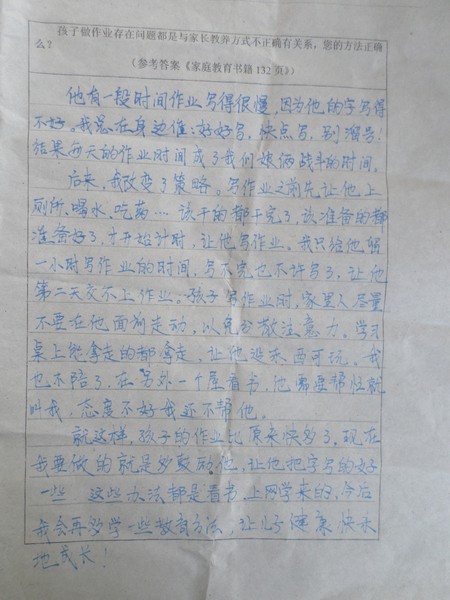 孩子做作业存在问题都是与家长教养方式不正确有关系，您的方法正确
么？
（参考答案《家庭教育书籍 132 页》）
他有一段时间作业写得很慢，因为他的字写得
不好。我总在身边催：好好写，快点写，别溜号！
结果每天的作业时间成了我们娘俩战斗的时间。
后来，我改变了策略。写作业之前先让他上
厕所、喝水、吃药…该干的都干完了，该准备的都
准备好了，才开始计时，让他写作业。我只给他留
一小时写作业的时间，写不完也不许写了，让他
第二天交不上作业。孩子写作业时，家里人尽量
不要在他面前走动，以免分散注意力。学习
桌上能拿走的都拿走，让他没东西可玩。我
也不陪了，在另外一个屋看书，他需要帮忙就
叫我，态度不好我还不帮他。
就这样，孩子的作业比原来快多了，现在
我要做的就是多鼓励他，让他把字写的好
一些。这些办法都是看书、上网学来的，今后
我会再多学一些教育方法，让儿子健康快乐
地成长！